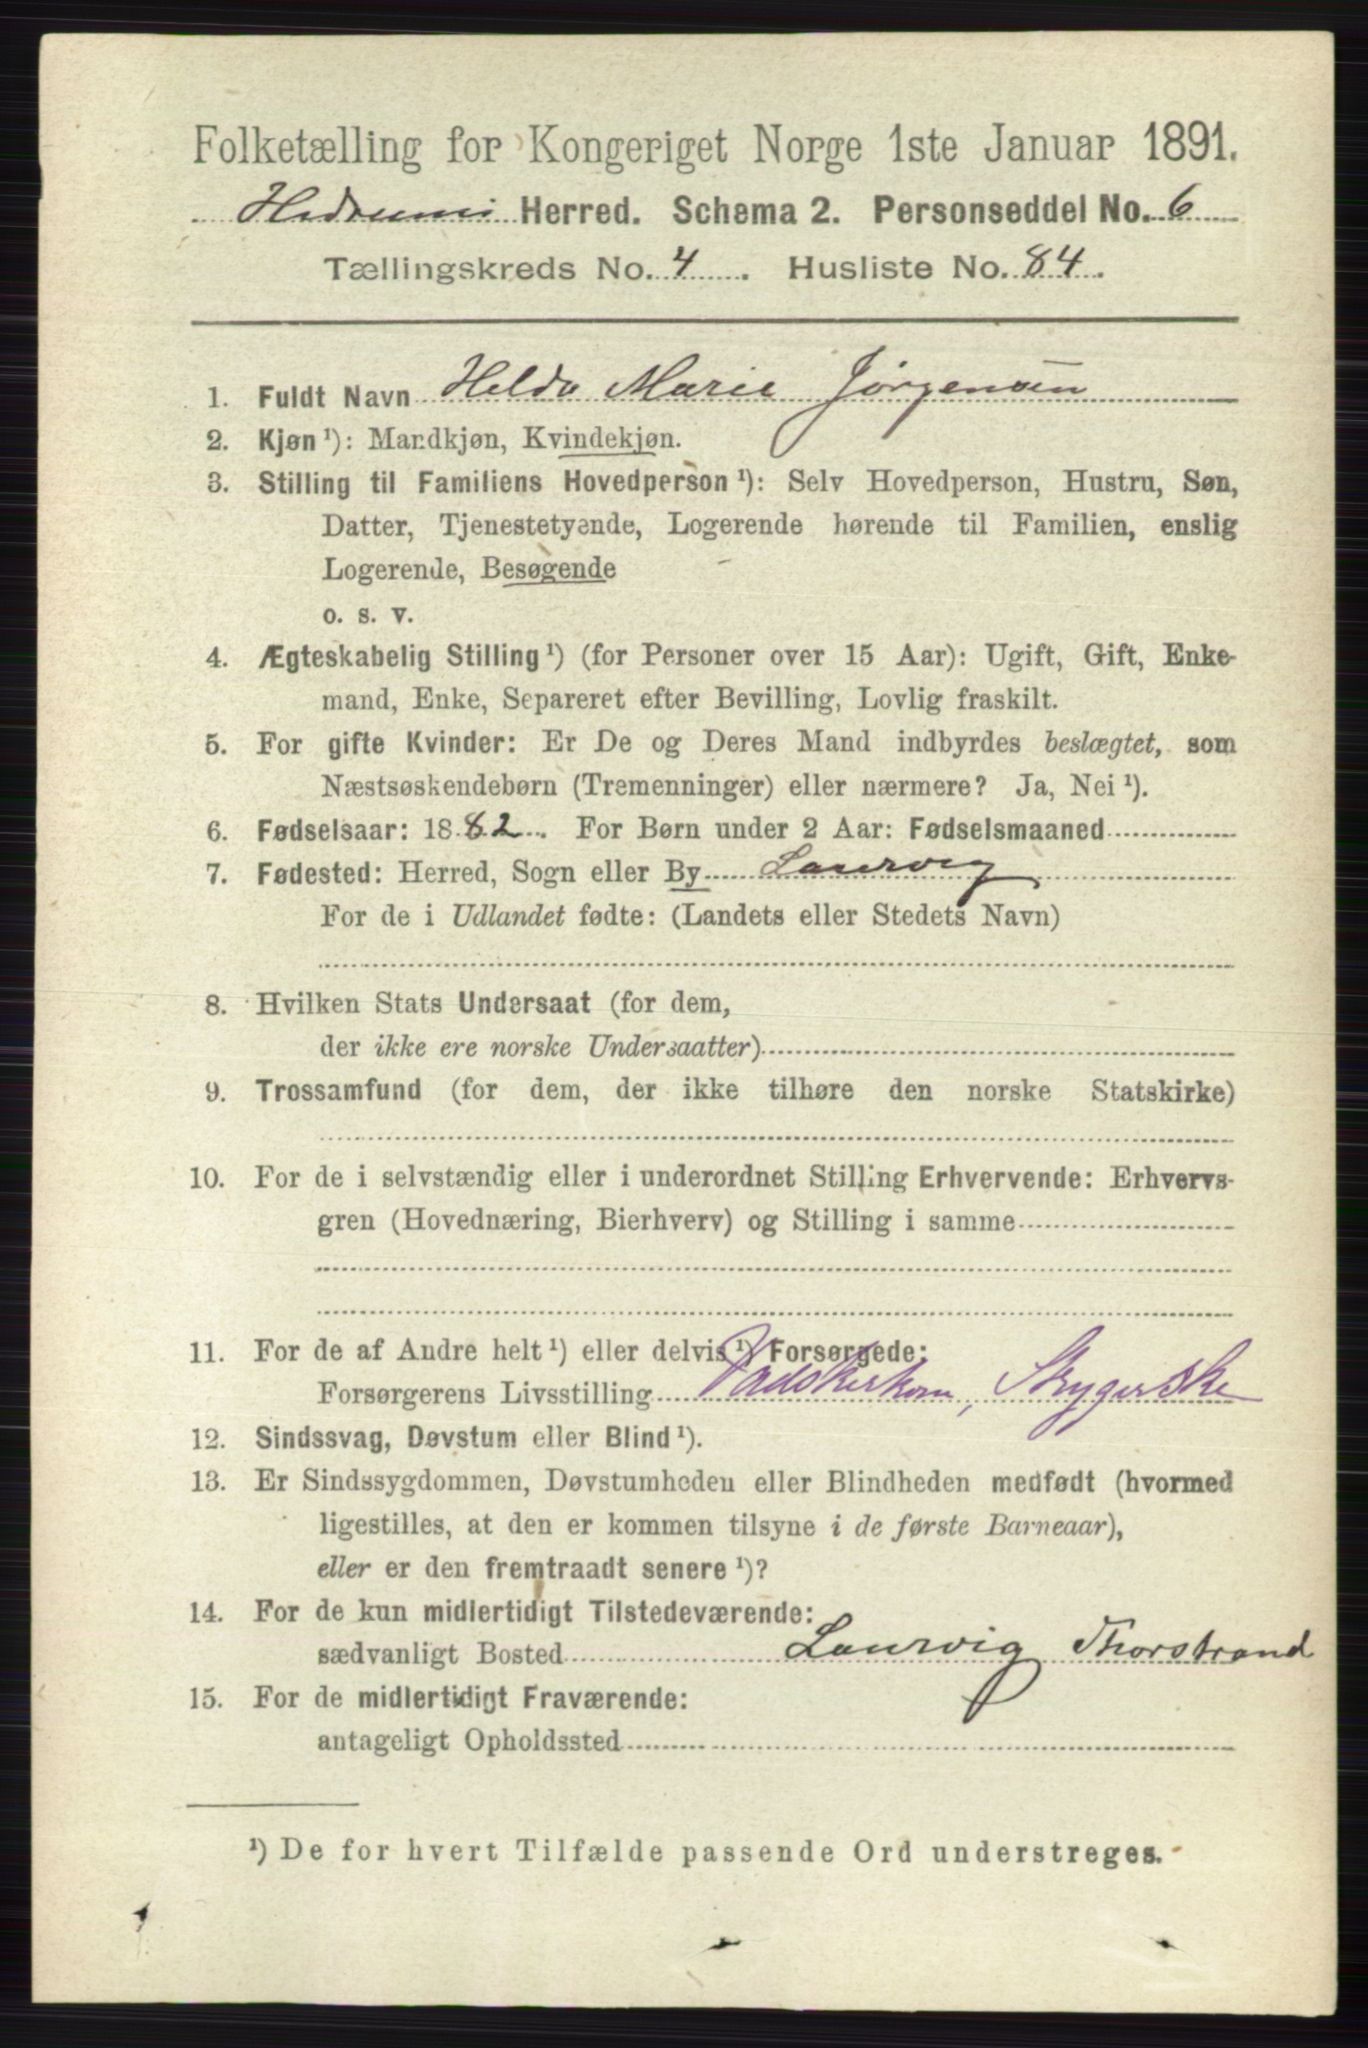 Folketælling for Kongeriget Norge 1ste Januar 1891.
Hedrum Herred. Schema 2. Personseddel No. 6
Tællingskreds No. 4. Husliste No. 84.
1. Fuldt Navn Helda Marie Jörgensen
2. Kjøn ¹): Mandkjøn, Kvindekjøn.
3. Stilling til Familiens Hovedperson ¹): Selv Hovedperson, Hustru, Søn,
Datter, Tjenestetyende, Logerende hørende til Familien, enslig
Logerende, Besøgende
o. s. v.
4. Ægteskabelig Stilling ¹) (for Personer over 15 Aar): Ugift, Gift, Enke-
mand, Enke, Separeret efter Bevilling, Lovlig fraskilt.
5. For gifte Kvinder: Er De og Deres Mand indbyrdes beslægtet, som
Næstsøskendebørn (Tremenninger) eller nærmere? Ja, Nei ¹).
6. Fødselsaar: 1882. For Børn under 2 Aar: Fødselsmaaned
7. Fødested: Herred, Sogn eller By Laurvig
For de i Udlandet fødte: (Landets eller Stedets Navn)
8. Hvilken Stats Undersaat (for dem,
der ikke ere norske Undersaatter)
9. Trossamfund (for dem, der ikke tilhøre den norske Statskirke)
10. For de i selvstændig eller i underordnet Stilling Erhvervende: Erhvervs-
gren (Hovednæring, Bierhverv) og Stilling i samme
11. For de af Andre helt ¹) eller delvis ¹) Forsørgede:
Forsørgerens Livsstilling Vadskerkone, Strygerske
12. Sindssvag, Døvstum eller Blind ¹).
13. Er Sindssygdommen, Døvstumheden eller Blindheden medfødt (hvormed
ligestilles, at den er kommen tilsyne i de første Barneaar),
eller er den fremtraadt senere ¹)?
14. For de kun midlertidigt Tilstedeværende:
sædvanligt Bosted Laurvig Thorstrand
15. For de midlertidigt Fraværende:
antageligt Opholdssted
¹) De for hvert Tilfælde passende Ord understreges.